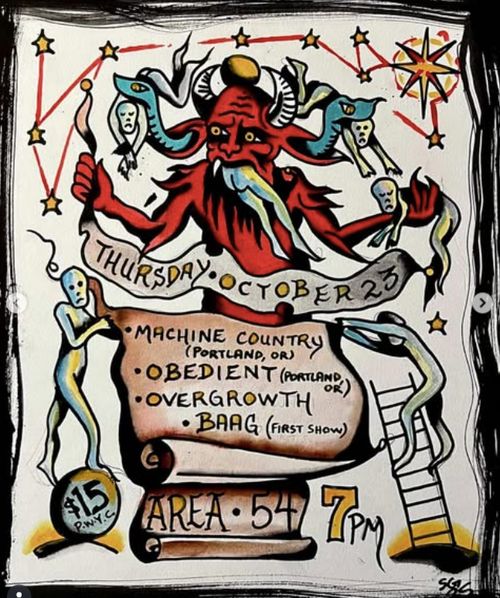 THURSDAY • OCTOBER 23
• MACHINE COUNTRY
(PORTLAND, OR)
• OBEDIENT (PORTLAND, OR)
• OVERGROWTH
• BAAG (FIRST SHOW)
$15
P.W.Y.C
AREA • 54
7PM